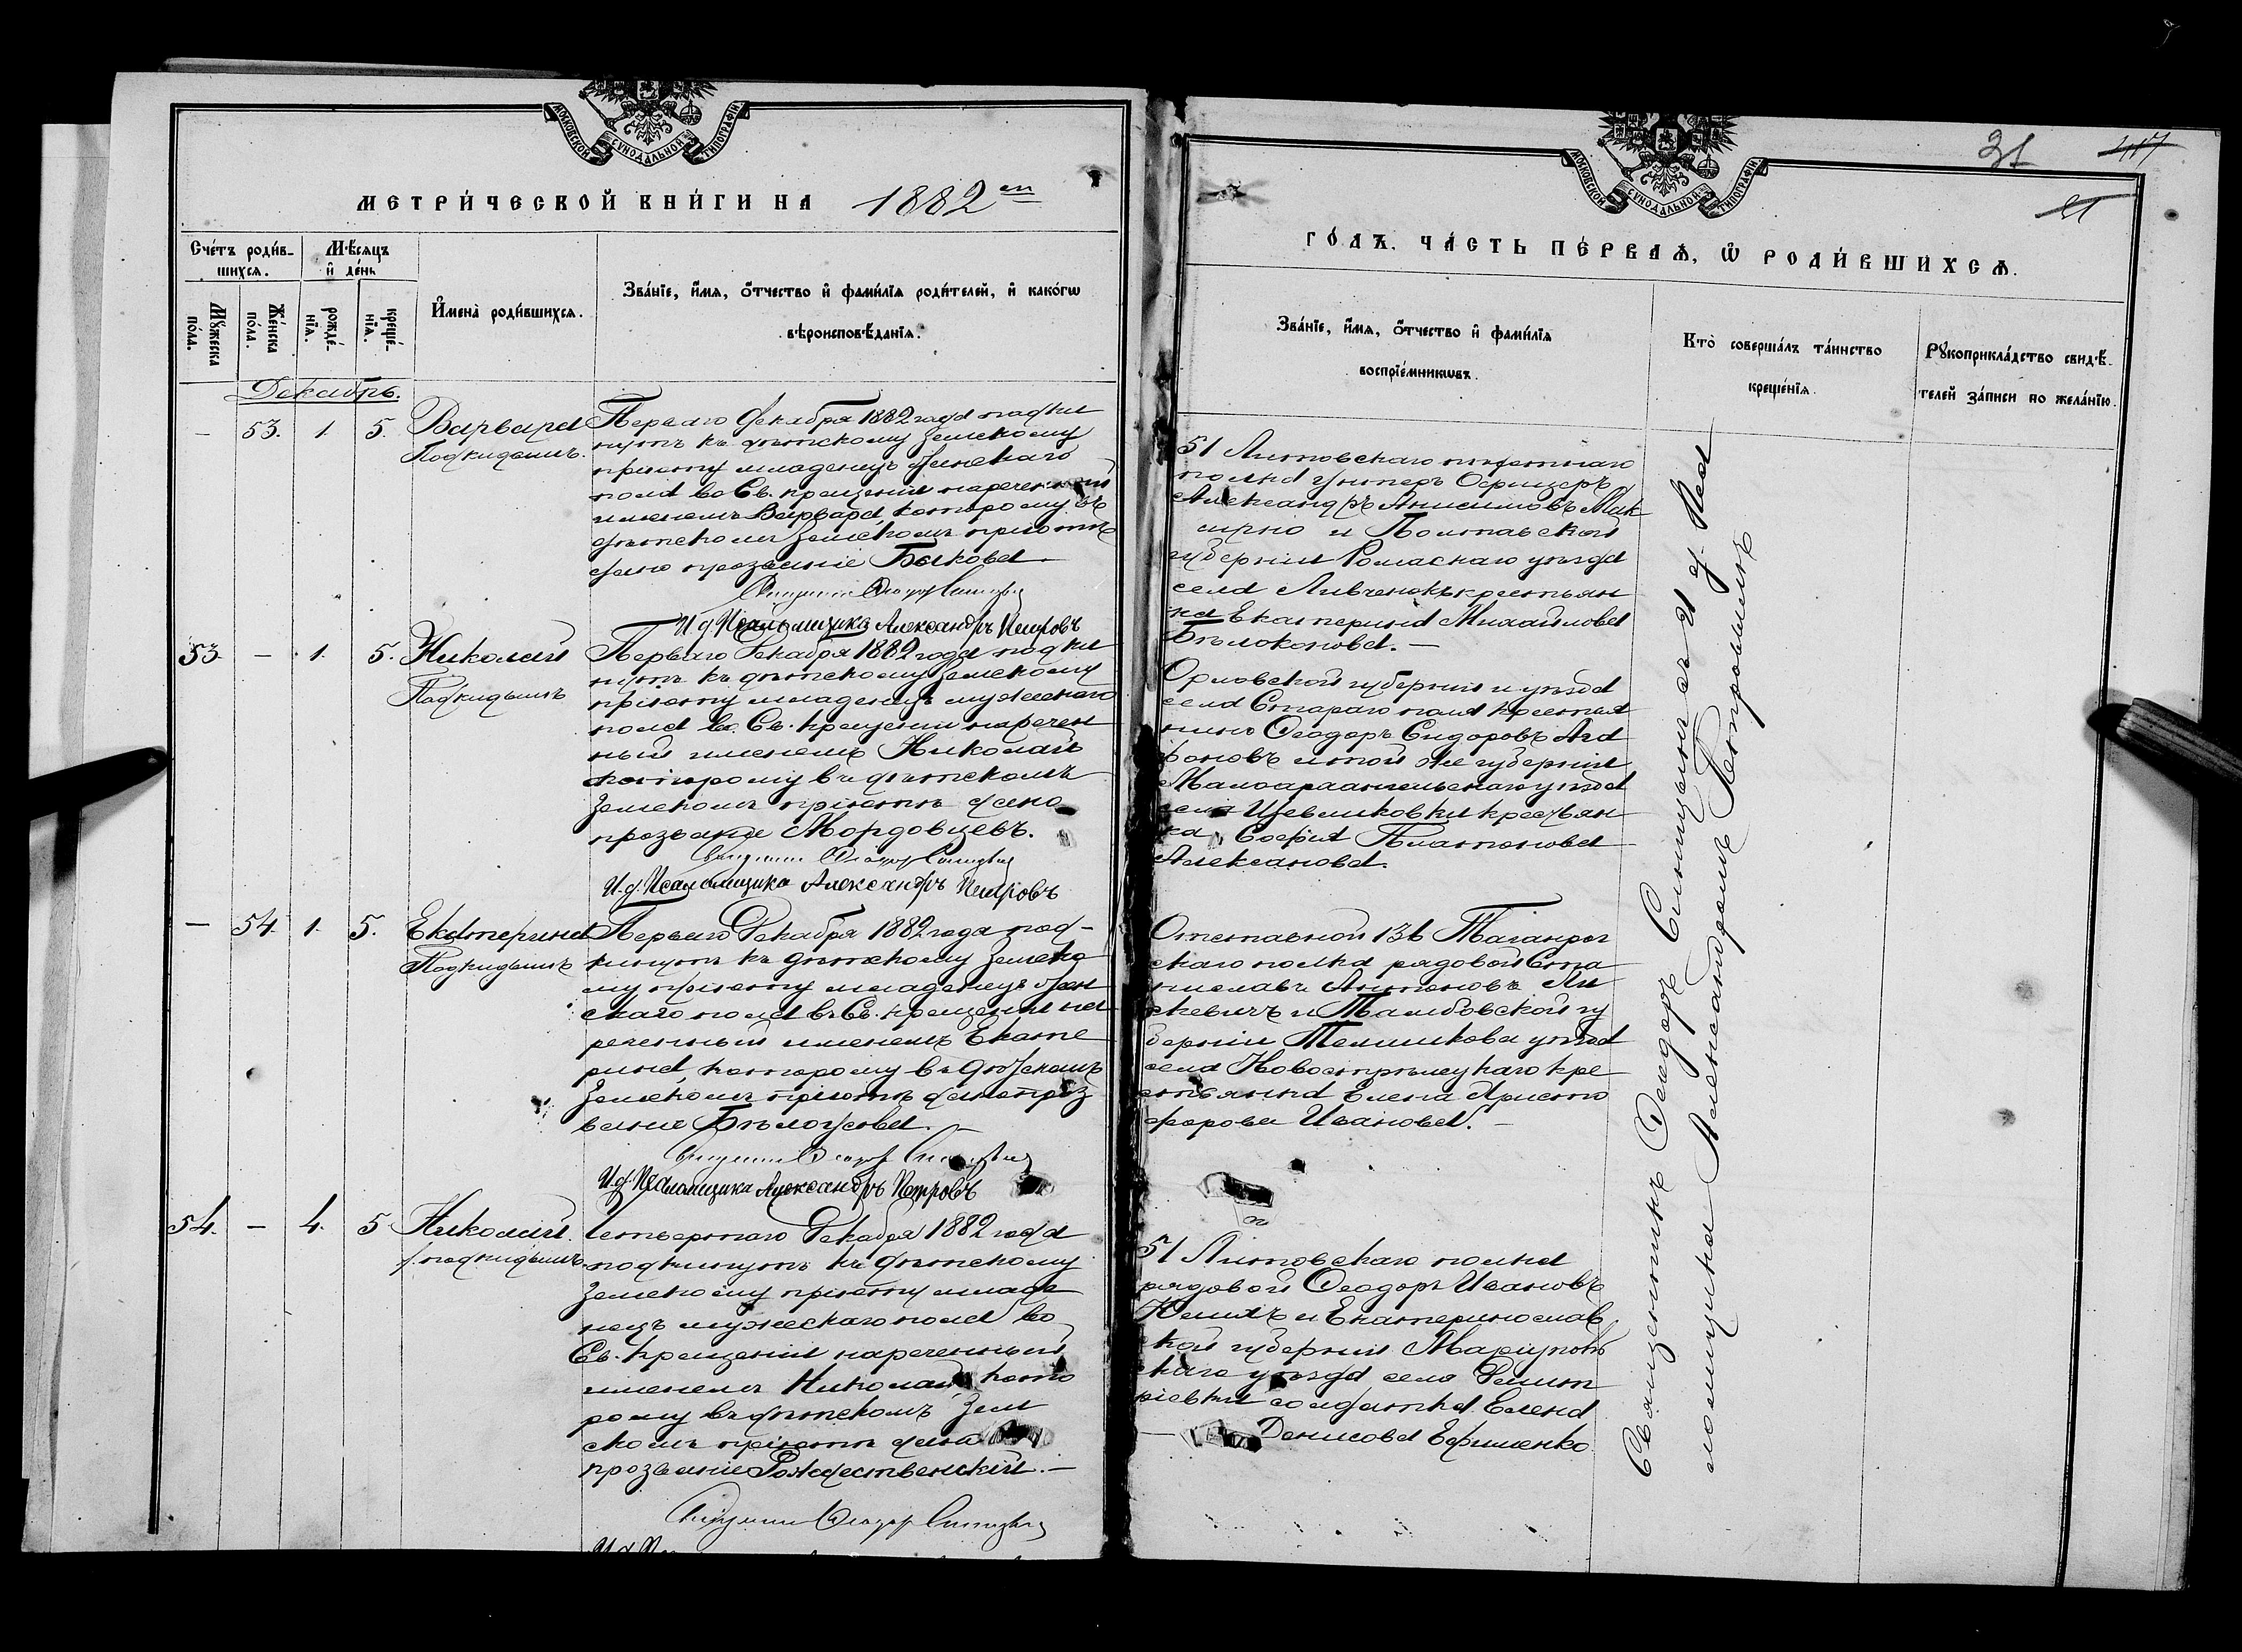 МОСКОВСКОЙ СУНОДАЛЬНОЙ ТИПОГРАФІИ
МЕТРИ́ЧЕСКОЙ КНИ́ГИ НА 1882 ей
Сче́тъ роди́в-
шихсѧ.
Мѣсѧцъ
и҆ де́нь
Мꙋжеска
по́ла.
Же́нска
по́ла.
рожде́-
нїѧ.
креще́-
нїѧ.
И҆мена̀ роди́вшихсѧ.
Зва́нїе, и҆́мѧ, ѻ҆́тчество и҆ фами́лїѧ роди́телей, и҆ како́гѡ
вѣроисповѣ́данїѧ.
Декабрь.
— 53. 1. 5. Варвара
Подкидышъ.
Перваго Декабря 1882 года подки
нутъ къ дѣтскому земскому
пріюту младенецъ женскаго
пола во Св. крещеніи нареченный
именемъ Варвара, которому въ
дѣтскомъ земскомъ пріютѣ
дано прозваніе Быкова
Священникъ Ѳеодоръ Синицынъ
И.д. Псаломщика Александръ Петровъ
53. — 1. 5. Николай
Подкидышъ
Перваго Декабря 1882 года подки
нутъ къ дѣтскому земскому
пріюту младенецъ мужескаго
пола во Св. крещеніи наречен
ный именемъ Николай
которому въ дѣтскомъ
земскомъ пріютѣ дано
прозваніе Мордовцевъ.
Священникъ Ѳеодоръ Синицынъ
И.д. Псаломщика Александръ Петровъ
— 54. 1. 5. Екатерина
Подкидышъ
Перваго Декабря 1882 года под-
кинутъ къ дѣтскому земско
му пріюту младенецъ жен
скаго пола въ Св. крещеніи на
реченный именемъ Екате
рина, которому въ дѣтскомъ
земскомъ пріютѣ дано проз
ваніе Бѣлоусова. —
Священникъ Ѳеодоръ Синицынъ
И.д. Псаломщика Александръ Петровъ
54. — 4. 5 Николай.
подкидышъ.
Четвертаго Декабря 1882 года
подкинутъ къ дѣтскому
земскому пріюту младе
нецъ мужескаго пола во
Св. крещеніи нареченный
именемъ Николай кото
рому въ дѣтскомъ зем
скомъ пріютѣ дано
прозваніе Рождественскій. —
Священникъ Ѳеодоръ Синицынъ
31 417
21
МОСКОВСКОЙ СУНОДАЛЬНОЙ ТИПОГРАФІИ
ГО́ДЪ. ЧА́СТЬ ПЕ́РВАѦ, Ѽ РОДИ́ВШИХСѦ.
Зва́нїе, и҆́мѧ, ѻ҆́тчество и҆ фами́лїѧ
воспрїе́мникѡвъ.
Кто̀ соверша́лъ та́инство
креще́нїѧ.
Рꙋкоприкла́дство свидѣ́-
телей за́писи по жела́нїю.
51 Литовскаго пѣхотнаго
полка Унтеръ Офицеръ
Александръ Анисимовъ
и Полтавской
губерніи Роменскаго уѣзда
села крестьян
ка Екатерина Михайлова
Бѣлоконова. —
Орловской губерніи и уѣзда
села Стараго поля крестья
нинъ Ѳеодоръ Сидоровъ Ага
фоновъ и той же губерніи
Малоархангельскаго уѣзда
села крестьян
ка Софія Платонова
Алексанова.
Отставной 136 Таганрог
скаго полка рядовой Ста
ниславъ Антоновъ
и Тамбовской гу
берніи Темникова уѣзда
села кре
стьянка Елена Христо
форова Иванова. —
51 Литовскаго полка
рядовой Ѳеодоръ Ивановъ
и Екатеринослав
ской губерніи Маріуполь
скаго уѣзда села Димит
ріевки солдатка Елена
Денисова Ефименко
Священникъ Ѳеодоръ Синицынъ съ И. д. Пса
ломщика Александромъ Петровымъ